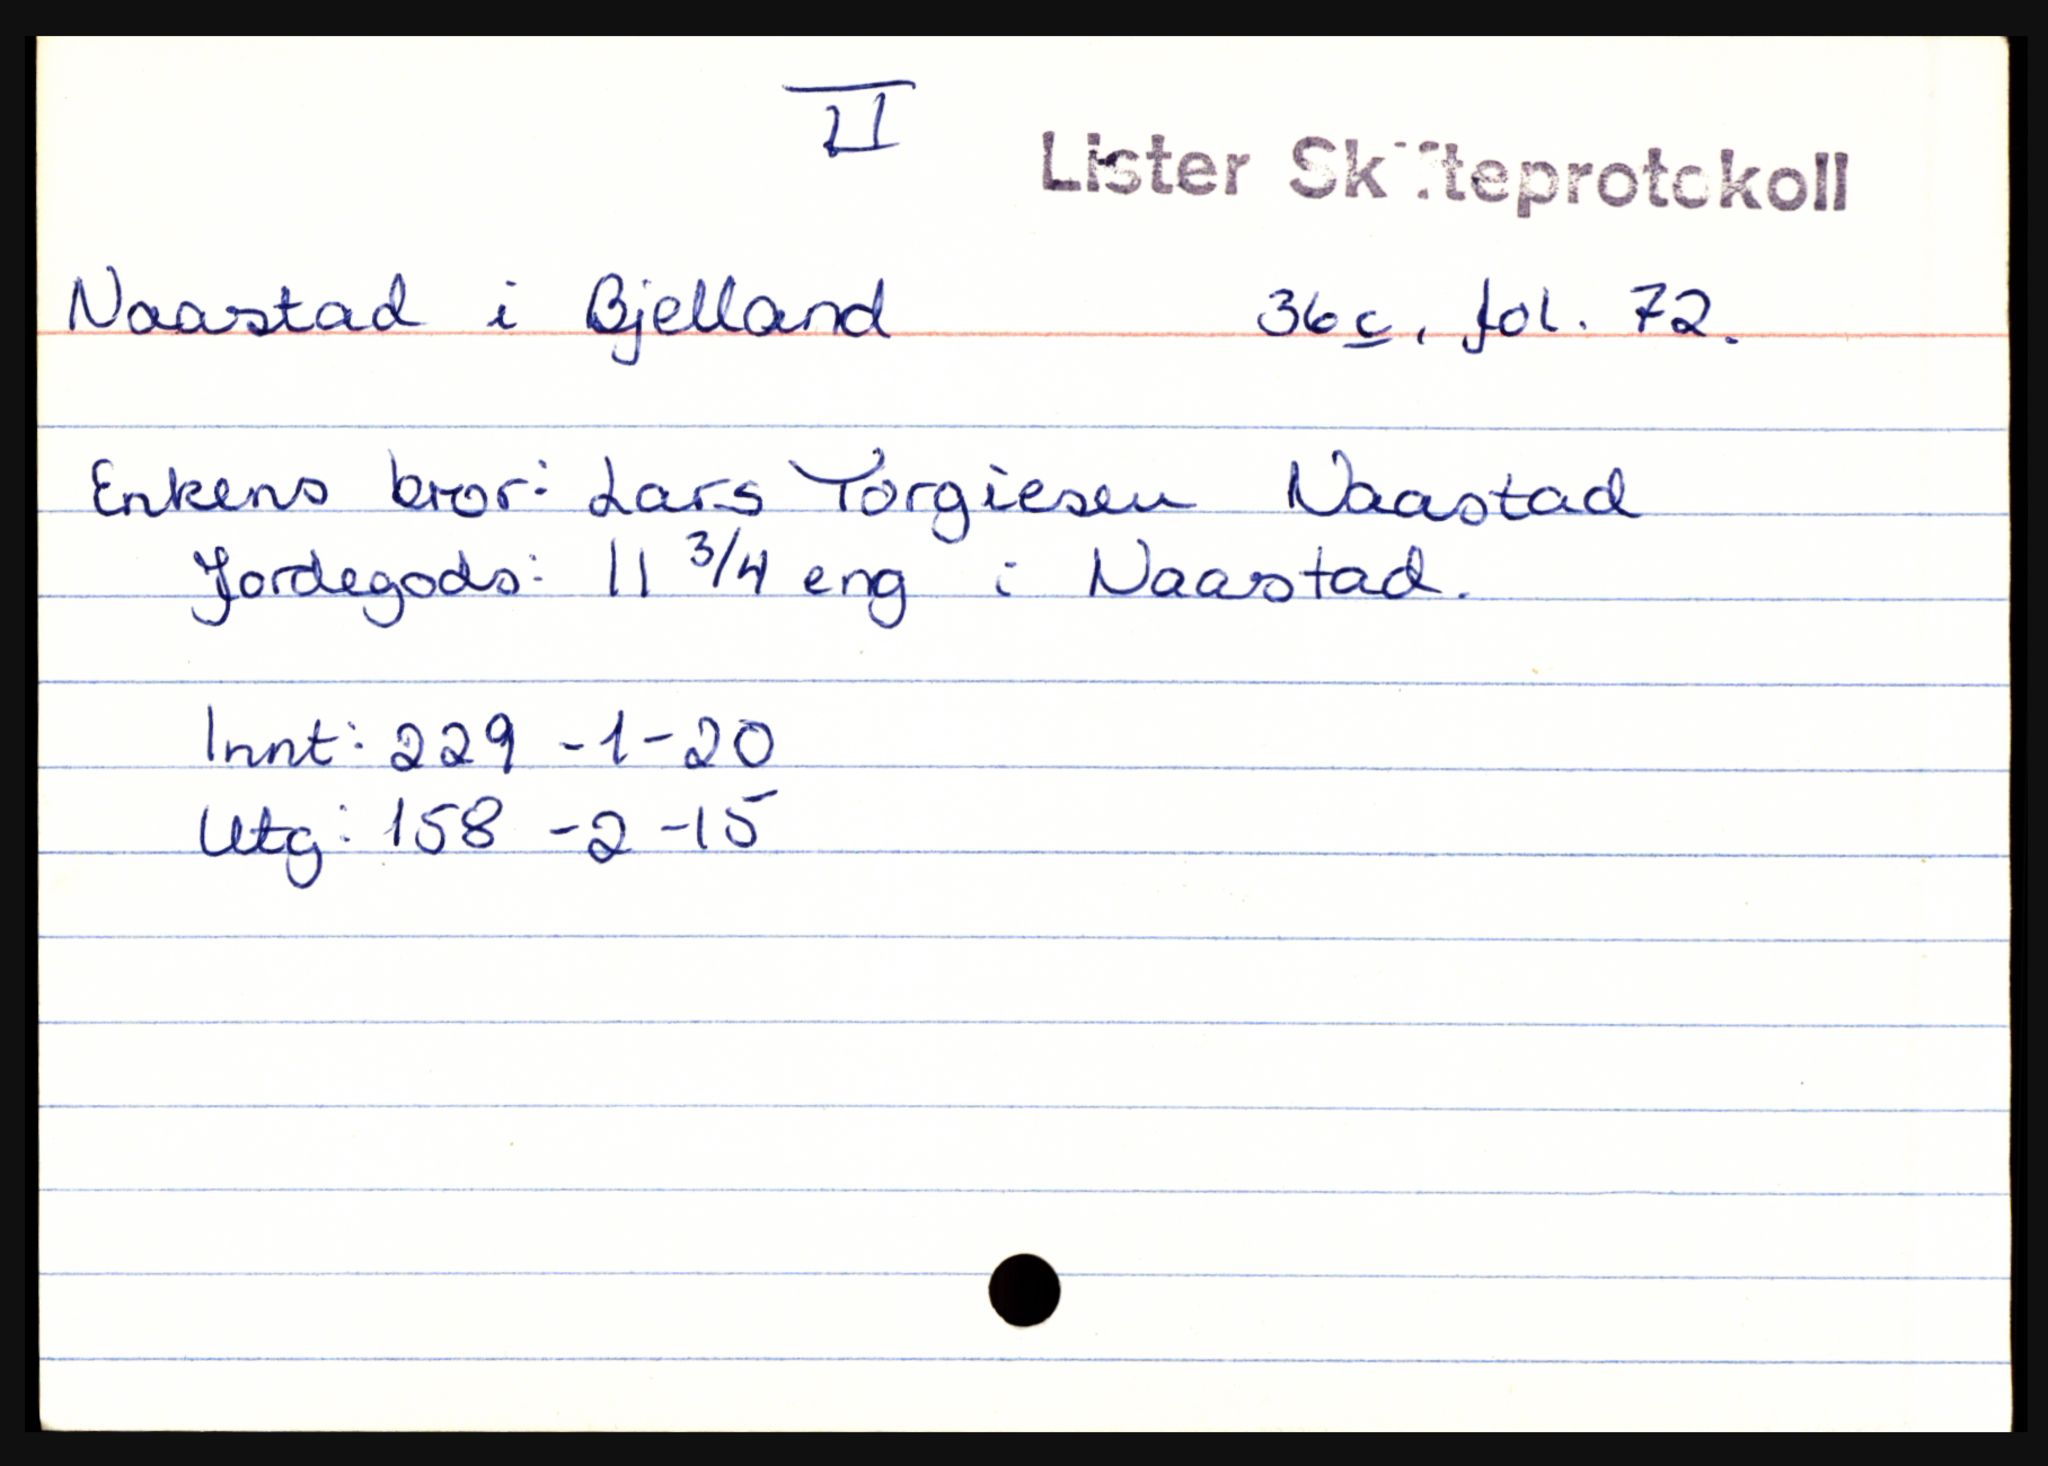 II
Lister Skifteprotokoll
Naastad i Bjelland 36c, fol. 72.
Enkens bror: Lars Torgiesen Naastad
Jordegods: 11 3/4 eng i Naastad.
Innt: 229 -1-20
Utg: 158 -2-15